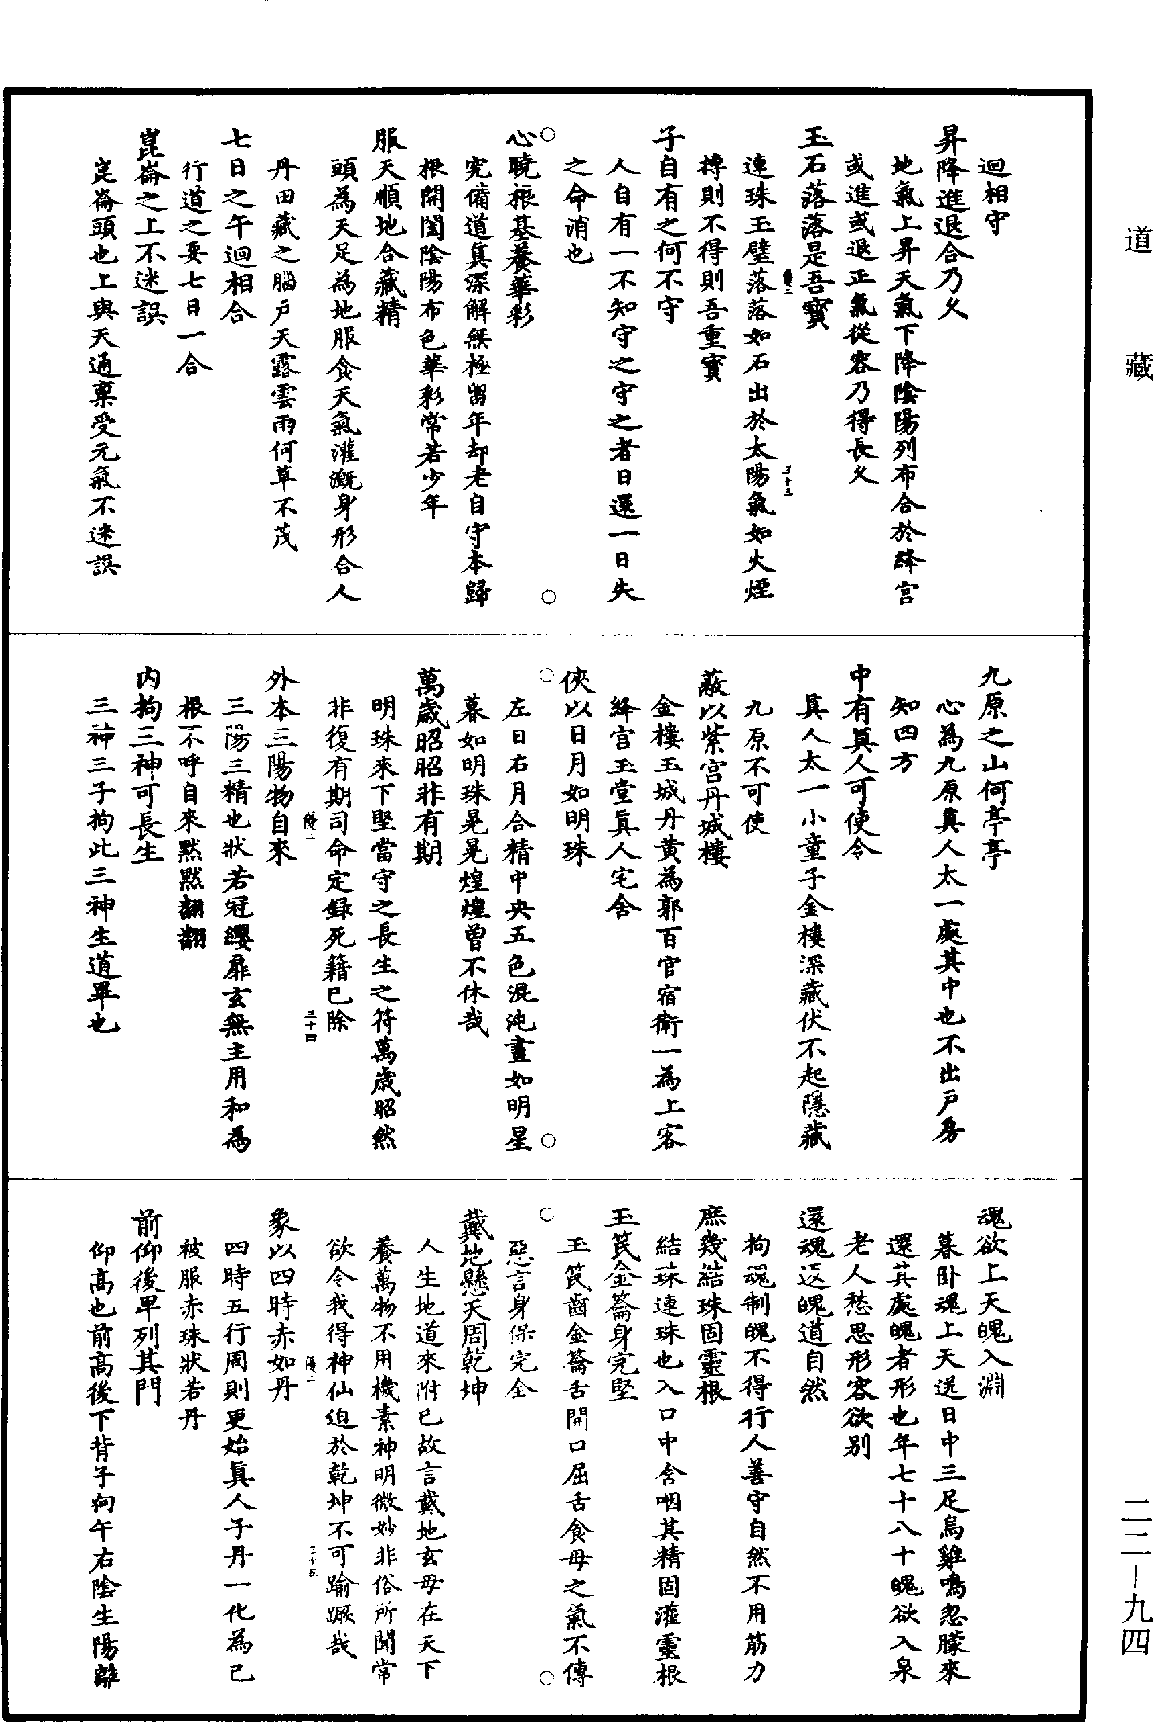 道藏
迴相守
昇降進退合乃久
地氣上昇天氣下降陰陽列布合於絳宮
或進或退正氣從容乃得長久
玉石落落是吾寶
連珠玉璧落落如石出於太陽氣如火煙
摶則不得則吾重寶
子自有之何不守
人自有一不知守之守之者日還一日失
之命消也
心曉根基養華彩
究備道真深解無極留年却老自守本歸
根開闔陰陽布色華彩常若少年
服天順地合藏精
頭為天足為地服食天氣灌溉身形合人
丹田藏之腦户天露雲雨何草不茂
七日之午迴相合
行道之要七日一合
崑崙之上不迷誤
崑崙頭也上與天通稟受元氣不迷誤
九原之山何亭亭
心為九原真人太一處其中也不出户房
知四方
中有真人可使令
真人太一小童子金樓深藏伏不起隱藏
九原不可使
蔽以紫宮丹城樓
金樓玉城丹黃為郭百官宿衛一為上客
絳宮玉堂真人宅舍
俠以日月如明珠
左日右月合精中央五色混沌晝如明星
暮如明珠晃晃煌煌曾不休哉
萬歲昭昭非有期
明珠來下堅當守之長生之符萬歲昭然
非復有期司命定録死籍已除
三十四
外本三陽物自來
三陽三精也狀若冠纓扉玄無主用和為
根不呼自來默默翻翻
内拘三神可長生
三神三子拘此三神生道畢也
魂欲上天魄入淵
暮卧魂上天送日中三足烏雞鳴忽朦來
還其處魄者形也年七十八十魄欲入泉
老人愁思形容欲别
還魂返魄道自然
拘魂制魄不得行人善守自然不用筋力
庶幾結珠固靈根
結珠連珠也入口中含咽其精固灌靈根
玉筤金籥身完堅
玉筤齒金籥舌開口屈舌食母之氣不傳
惡言身保完全
戴地懸天周乾坤
人生地道來附已故言戴地玄母在天下
養萬物不用機素神明微妙非俗所聞常
欲令我得神仙迫於乾坤不可踰蹶哉
三十五
象以四時赤如丹
四時五行周則更始真人子丹一化為已
被服赤珠狀若丹
前仰後卑列其門
仰高也前高後下背子向午右陰生陽離
二二—九四